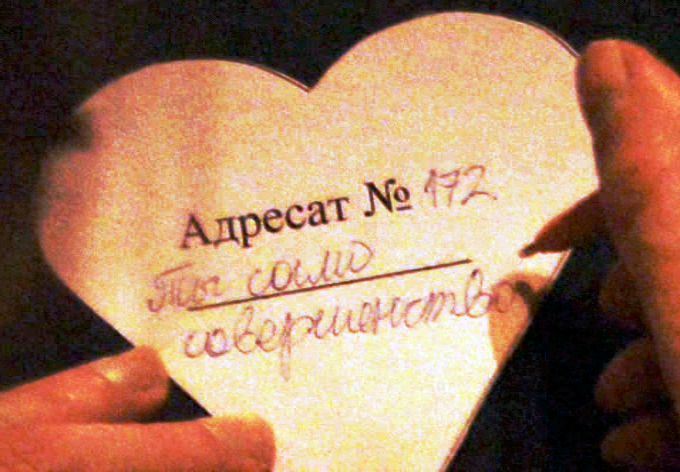 Адресат № 172
Ты само
совершенство